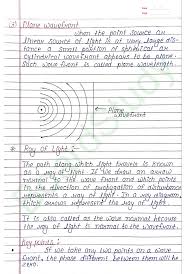 (3) Plane wavefront
when the point source an
linear source of light is at very large dis-
tance a small position of spherical an
cylindrical wavefront appears to be plane.
Such wave front is called plane wavelength
Plane
wavefront
* Ray of light :-
The path along which light travels is known
as a ray of light. If we draw an arrow
normal to the wave front and which points
in the direction of propagation of disturbance
represents a ray of light. In a ray diagram,
thick arrows represent the ray of light.
It is also called as the wave normal because
the ray of light is normal to the wavefront.
Key points :
If we take any two points on a wave
front, the phase different between them will be
zero.